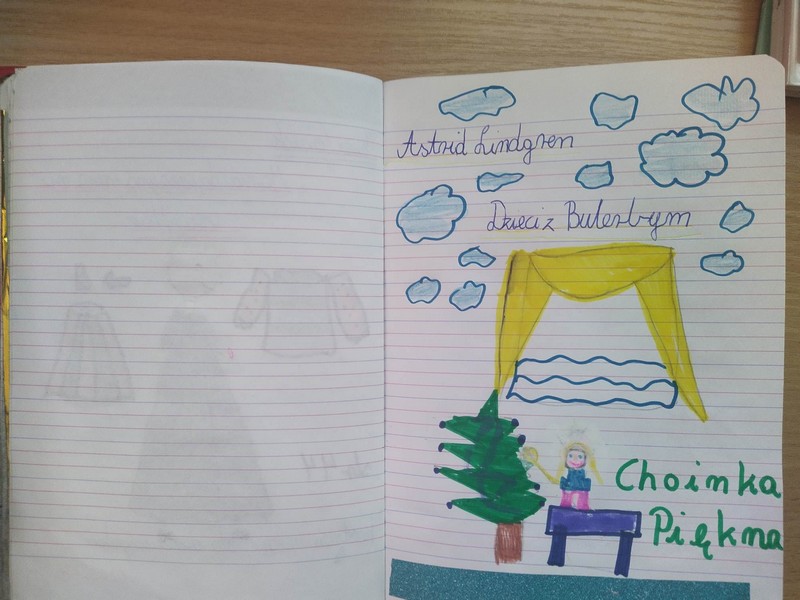 Astrid Lindgren
Dzieci z Bulerbym
Choinka
Piękna